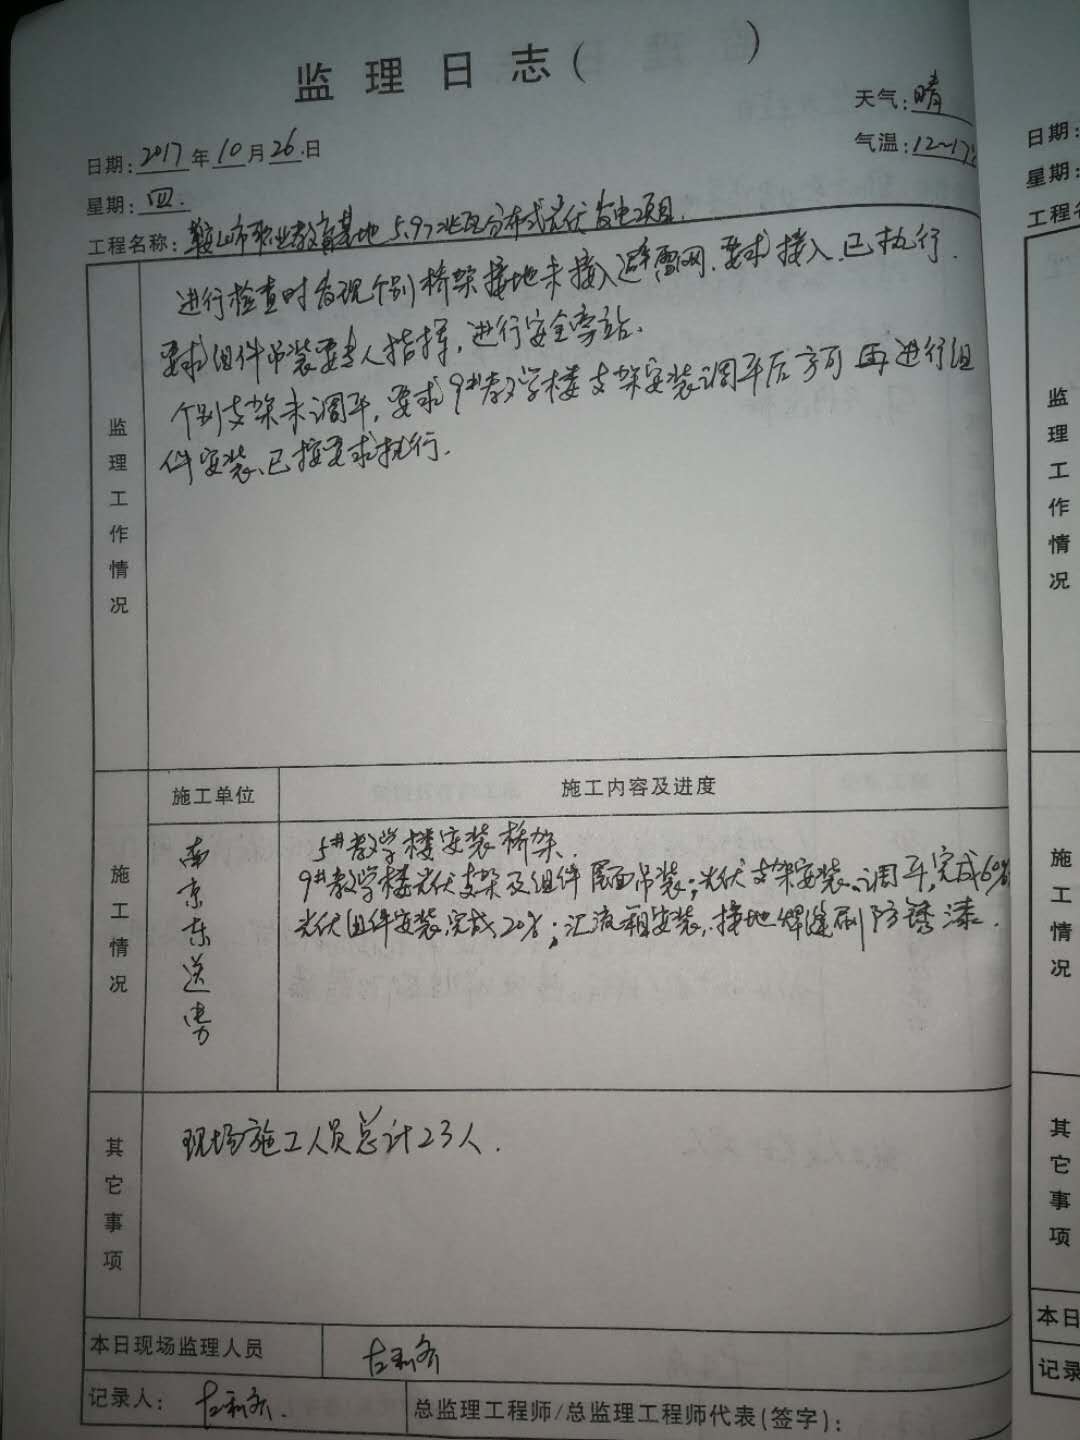 监理日志( )
天气:晴
日期:2017年10月26日
气温:12~17
星期:四.
工程名称:鞍山市职业教育基地5.97兆瓦分布式光伏发电项目.
监理工作情况
进行检查时发现个别桥架接地未接入避雷网.要求接入.已执行.
要求组件吊装要专人指挥,进行安全旁站.
个别支架未调平,要求9#教学楼支架安装调平后方可再进行组
件安装、已按要求执行.
施工情况
施工单位
施工内容及进度
南京东送电力
5#教学楼安装桥架.
9#教学楼光伏支架及组件屋面吊装;光伏支架安装、调平,完成60%
光伏组件安装完成20%;汇流箱安装,接地焊缝刷防锈漆.
其它事项
现场施工人员总计23人.
本日现场监理人员
记录人:
总监理工程师/总监理工程师代表(签字):
日期:
星期:
工程名
监理工作情况
施工情况
其它事项
本日
记录